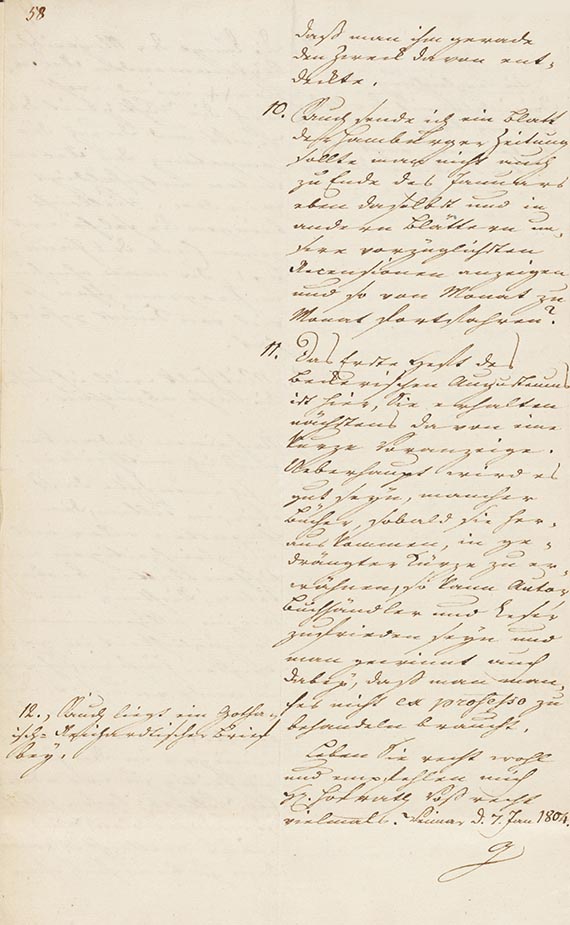 58
daß man ihm gerade
den Zweck davon ent-
deckte.
10. Auch sende ich ein Blatt
der Hamburger Zeitung
sollte man nicht auch
zu Ende des Januars
eben daselbst und in
andern Blättern un-
sere vorzüglichsten
Recensionen anzeigen
und so von Monat zu
Monat fortfahren?
11. Das Erste Heft des
Beckerischen Augusteums
ist hier, Sie erhalten
nächstens davon eine
kurze Voranzeige.
Ueberhaupt wird es
gut seyn, mancher
Bücher, sobald sie her-
auskommen, in ge-
drängter Kürze zu er-
wähnen, so kann Autor,
Buchhändler und Leser
zufrieden seyn und
man gewinnt auch
dabey, daß man man-
ches nicht ex professo zu
behandeln braucht.
12., Auch liegt ein Gotha-
isch- Reichardtischer Brief
bey.
Leben Sie recht wohl
und empfehlen mich
H. Hofrath Voß recht
vielmals. Weimar d. 7. Jan 1804.
G